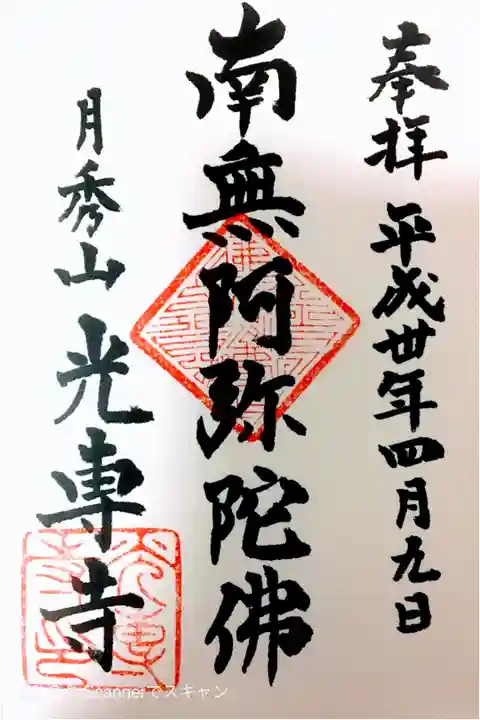 奉拝 平成卅年四月九日
南無阿弥陀佛
月秀山 光専寺
Scannerでスキャン